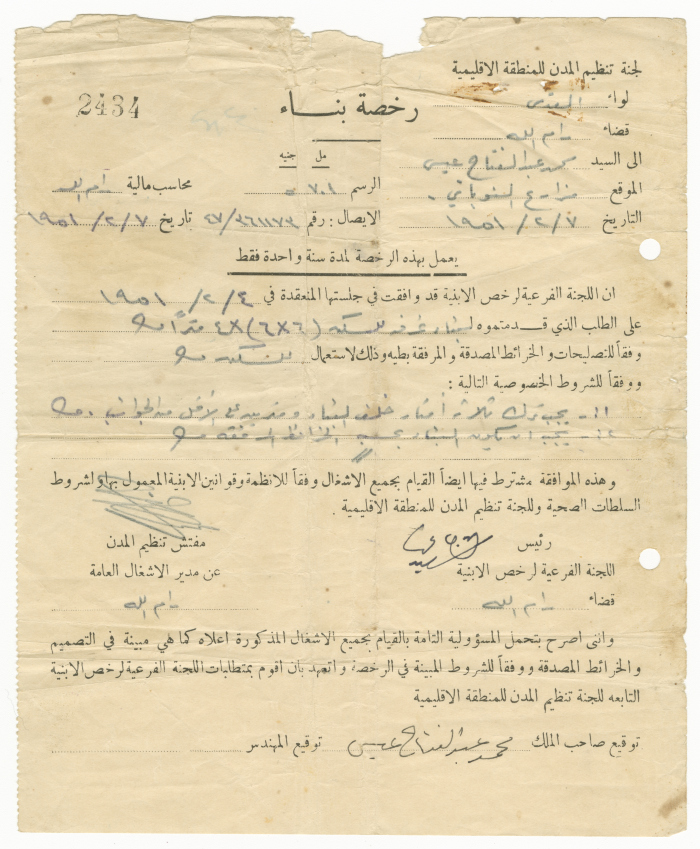 لجنة تنظيم المدن للمنطقة الاقليمية
لواء القدس
2434
رخصة بناء
قضاء رام الله
الى السيد محمد عبد الفتاح عيسى
مل جنيه
الموقع مزارع النوباني .
الرسم ٧٠١
محاسب مالية رام الله
التاريخ ٧ / ٢ / ١٩٥١
الايصال : رقم ٤٧/٣٦١١٧٣ تاريخ ٧ / ٢ / ١٩٥١
يعمل بهذه الرخصة لمدة سنة واحدة فقط
ان اللجنة الفرعية لرخص الابنية قد وافقت في جلستها المنعقدة في ٤ / ٢ / ١٩٥١
على الطلب الذي قدمتموه لبناء غرف للسكن (٦×٨) ٤٨ متراً
وفقاً للتصليحات و الخرائط المصدقة والمرفقة بطيه وذلك لاستعمال للسكن
ووفقاً للشروط الخصوصية التالية :
١- يجب ترك ثلاثة أمتار خلف البناء ومترين على الأقل من الجوانب .
٢- يجب ان يكون البناء بحسب الخرائط المرفقة
وهذه الموافقة مشترط فيها ايضاً القيام بجميع الاشغال وفقاً للانظمة وقوانين الابنية المعمول بها ولشروط
السلطات الصحية وللجنة تنظيم المدن للمنطقة الاقليمية .
رئيس
مفتش تنظيم المدن
اللجنة الفرعية لرخص الابنية
عن مدير الاشغال العامة
قضاء رام الله
رام الله
وانى اصرح بتحمل المسؤولية التامة بالقيام بجميع الاشغال المذكورة اعلاه كما هي مبينة في التصميم
والخرائط المصدقة ووفقاً للشروط المبينة في الرخصة واتعهد بان اقوم بمتطلبات اللجنة الفرعية لرخص الابنية
التابعه للجنة تنظيم المدن للمنطقة الاقليمية
توقيع صاحب الملك محمد عبد الفتاح عيسى توقيع المهندس